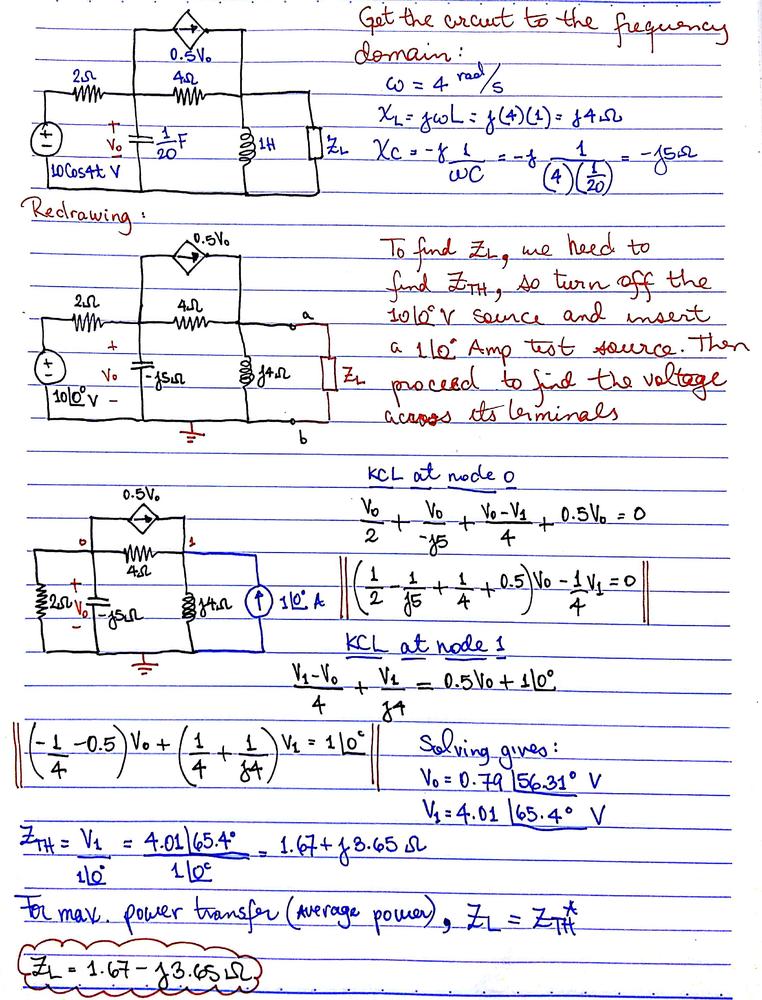 Get the circuit to the frequency
domain:
ω = 4 rad/s
X_L = jωL = j(4)(1) = j4Ω
X_C = -j 1/ωC = -j 1/((4)(1/20)) = -j5Ω
0.5V₀
2Ω 4Ω
+ V₀ - 1/20 F 1H Z_L
+ -
10Cos4t V
Redrawing:
0.5V₀
2Ω 4Ω a
+ V₀ - -j5Ω j4Ω Z_L
+ -
10∠0° V
b
To find Z_L, we need to
find Z_TH, so turn off the
10∠0° V source and insert
a 1∠0° Amp test source. Then
proceed to find the voltage
across its terminals
0.5V₀
0 1
4Ω
2Ω + V₀ - -j5Ω j4Ω 1∠0° A
KCL at node 0
V₀/2 + V₀/-j5 + (V₀-V₁)/4 + 0.5V₀ = 0
(1/2 - 1/j5 + 1/4 + 0.5)V₀ - 1/4 V₁ = 0
KCL at node 1
(V₁-V₀)/4 + V₁/j4 = 0.5V₀ + 1∠0°
(-1/4 - 0.5)V₀ + (1/4 + 1/j4)V₁ = 1∠0°
Solving gives:
V₀ = 0.79∠56.31° V
V₁ = 4.01∠65.4° V
Z_TH = V₁/1∠0° = 4.01∠65.4°/1∠0° = 1.67 + j3.65Ω
For max. power transfer (Average power), Z_L = Z_TH*
Z_L = 1.67 - j3.65Ω